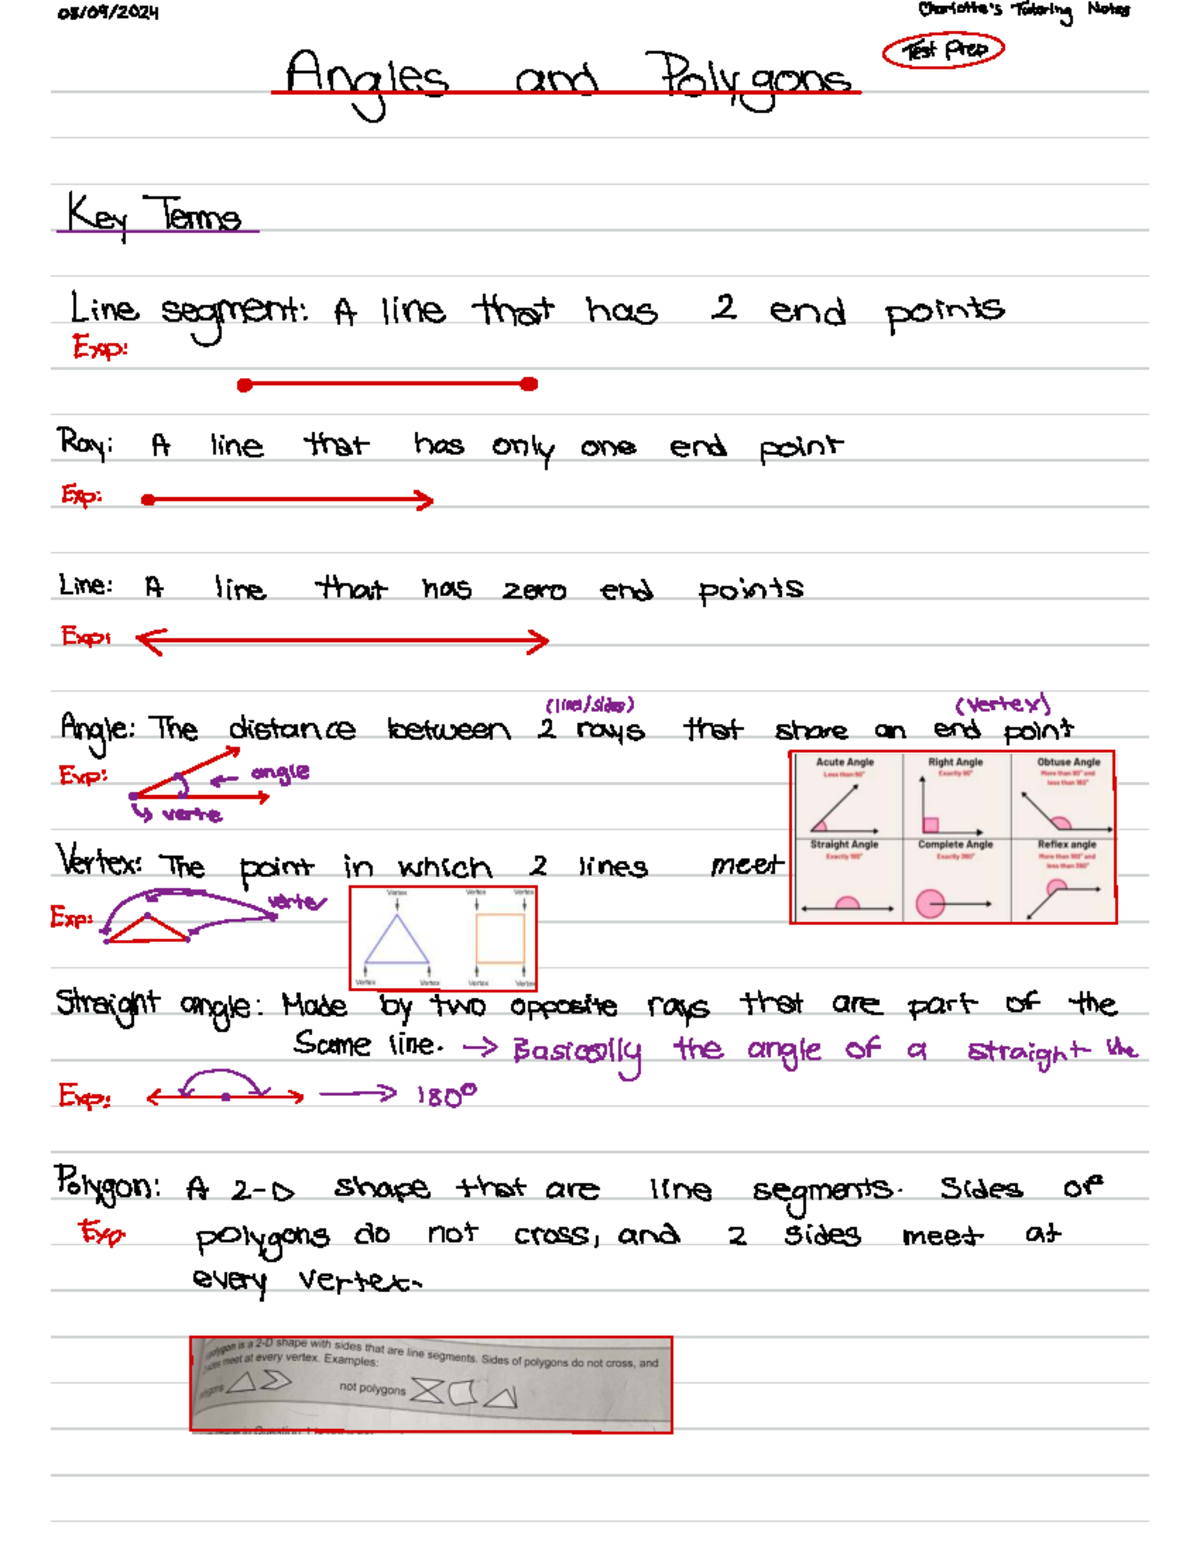 08/09/2024
Charlotte's Tutoring Notes
Test Prep
Angles and Polygons
Key Terms
Line segment: A line that has 2 end points
Exp:
Ray: A line that has only one end point
Exp:
Line: A line that has zero end points
Exp:
(lines/sides) (vertex)
Angle: The distance between 2 rays that share an end point
Exp:
angle
verte
Acute Angle
Less than 90°
Right Angle
Exactly 90°
Obtuse Angle
More than 90° and
less than 180°
Straight Angle
Exactly 180°
Complete Angle
Exactly 360°
Reflex angle
More than 180° and
less than 360°
Vertex: The point in which 2 lines meet
Exp:
vertex
Vertex Vertex Vertex
Vertex Vertex Vertex Vertex
Straight angle: Made by two opposite rays that are part of the
Same line. → Basically the angle of a straight line
Exp: → 180°
Polygon: A 2-D shape that are line segments. Sides of
Exp polygons do not cross, and 2 sides meet at
every vertex.
polygon is a 2-D shape with sides that are line segments. Sides of polygons do not cross, and
sides meet at every vertex. Examples:
polygons not polygons